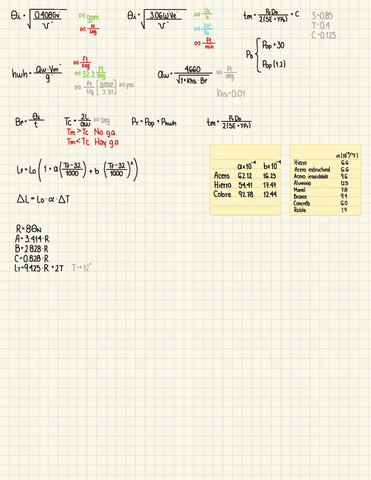 θi = √(0.408Gv / v) ∞ gpm
∞ ft/seg
θi = √(3.06WVe / v) ∞ lb/h
∞ ft³/lb
∞ ft/min
tm = PtDo / 2(SE + YPt) + C
S=0.85
Y=0.4
C=0.125
PD { Pop + 30
Pop (1.2)
hwh = aw·Vm / g
∞ ft/seg
∞ 32.2 ft/seg
∞ psi
aw = 4660 / √(1 + Khs·Br) ∞ ft/seg
Khs=0.01
Br = θi / t
Tc = 2L / aw ∞ seg
Tm > Tc No g.a
Tm < Tc Hay g.a
PT = Pop + Phwh
tm = PtDo / 2(SE + YPt)
Lf = Lo (1 + a (Tf-32 / 1000) + b (Tf-32 / 1000)²)
ΔL = Lo·α·ΔT
a×10⁻⁴ b×10⁻⁴
Acero 62.12 16.23
Hierro 54.41 17.47
Cobre 92.78 12.44
α (10⁻⁶/°F)
Hierro 6.6
Acero estructural 6.6
Acero inoxidable 9.6
Aluminio
Monel 7.8
Bronce
Concreto 6.0
Roble
R = 8θN
A = 3.414·R
B = 2.828·R
C = 0.828·R
LT = 9.425·R + 2T T→12"